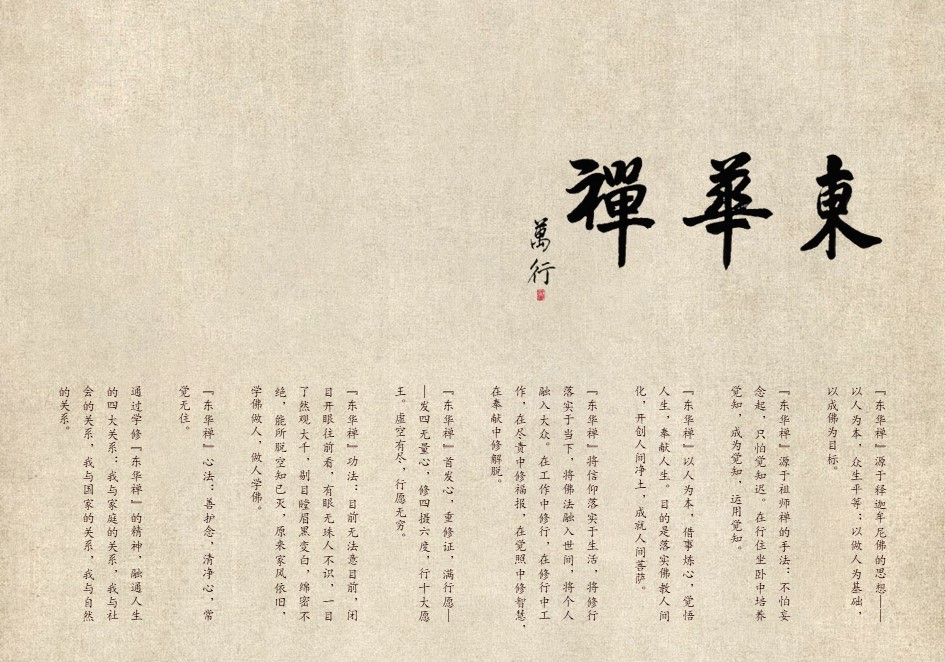 東華禪
萬行
『东华禅』源于释迦牟尼佛的思想——
以人为本，众生平等；以做人为基础，
以成佛为目标。
『东华禅』源于祖师禅的手法：不怕妄
念起，只怕觉知迟。在行住坐卧中培养
觉知，成为觉知，运用觉知。
『东华禅』以人为本，借事炼心，觉悟
人生，奉献人生。目的是落实佛教人间
化，开创人间净土，成就人间菩萨。
『东华禅』将信仰落实于生活，将修行
落实于当下，将佛法融入世间，将个人
融入大众。在工作中修行，在修行中工
作，在尽责中修福报，在觉照中修智慧，
在奉献中修解脱。
『东华禅』首发心，重修证，满行愿—
—发四无量心，修四摄六度，行十大愿
王。虚空有尽，行愿无穷。
『东华禅』功法：目前无法意目前，闭
目开眼往前看，有眼无珠人不识，一目
了然观大千，剔目瞠眉黑变白，绵密不
绝，能所脱空知已灭，原来家风依旧，
学佛做人，做人学佛。
『东华禅』心法：善护念，清净心，常
觉无住。
通过学修『东华禅』的精神，融通人生
的四大关系：我与家庭的关系，我与社
会的关系，我与国家的关系，我与自然
的关系。